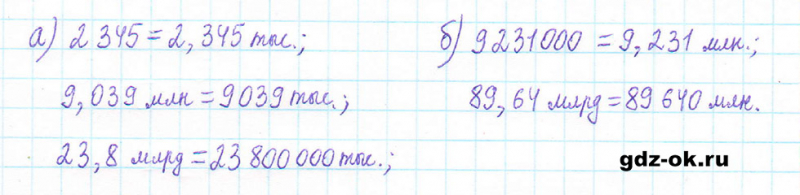 а) 2 345 = 2,345 тыс.; б) 9231000 = 9,231 млн.;
9,039 млн = 9039 тыс.; 89,64 млрд = 89 640 млн.
23,8 млрд = 23 800 000 тыс.;
gdz-ok.ru